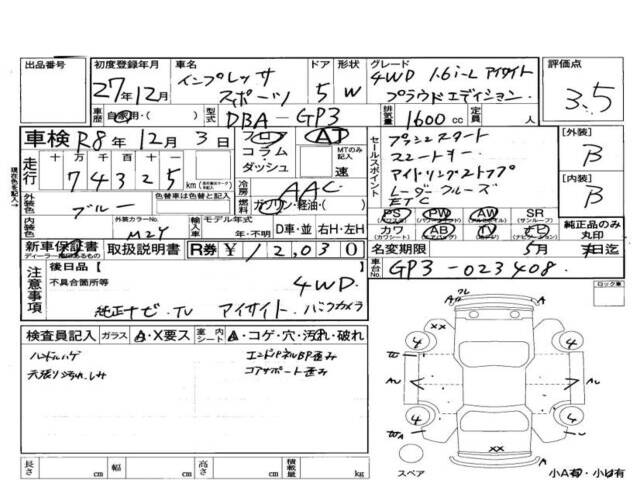 出品番号
初度登録年月 車名 ドア 形状 グレード 評価点
27年12月 インプレッサ スポーツ 5 W 4WD 1.6i-L アイサイト プラウドエディション 3.5
車歴 自家用・( ) 型式 DBA-GP3 排気量 1600cc 定員 人
車検 R8年 12月 3日 フロア コラム ダッシュ AT MTのみ記入 速
セールスポイント プッシュスタート スマートキー アイドリングストップ レーダークルーズ ETC
[外装] B
[内装] B
現在色を記入→
走行 十 万 千 百 十 一
74325 km
冷房 AAC
外装色 ブルー 色替車は色替前の色
燃料 ガソリン・軽油・( )
内装色 外装カラーNo. M2Y 輸入車 モデル年式 年・不明 D車・並 右H・左H
PS (パワーステアリング) PW (パワーウィンドウ) AW (アルミホイル) SR (サンルーフ)
カワ (カワシート) AB (エアバッグ) TV ナビ (ナビゲーション) 純正品のみ丸印
新車保証書 ディーラー権印あるもの 取扱説明書 R券 ¥12,030
名変期限 5月 末日迄
車台No. GP3-023408
注意事項 後日品[ ]
不具合箇所等 4WD
純正ナビ.TV アイサイト.バックカメラ
ロック車
検査員記入 ガラス A・X要ス 室内シート A・コゲ・穴・汚れ・破れ
ハンドルハゲ エンドパネルBP歪み
天張り汚れ.シミ コアサポート歪み
A ワレ A
XX
4 4
W
AU AU
4 4
WA
XX
スペア 小A有・小U有
長さ cm 幅 cm 高さ cm 積載量 kg